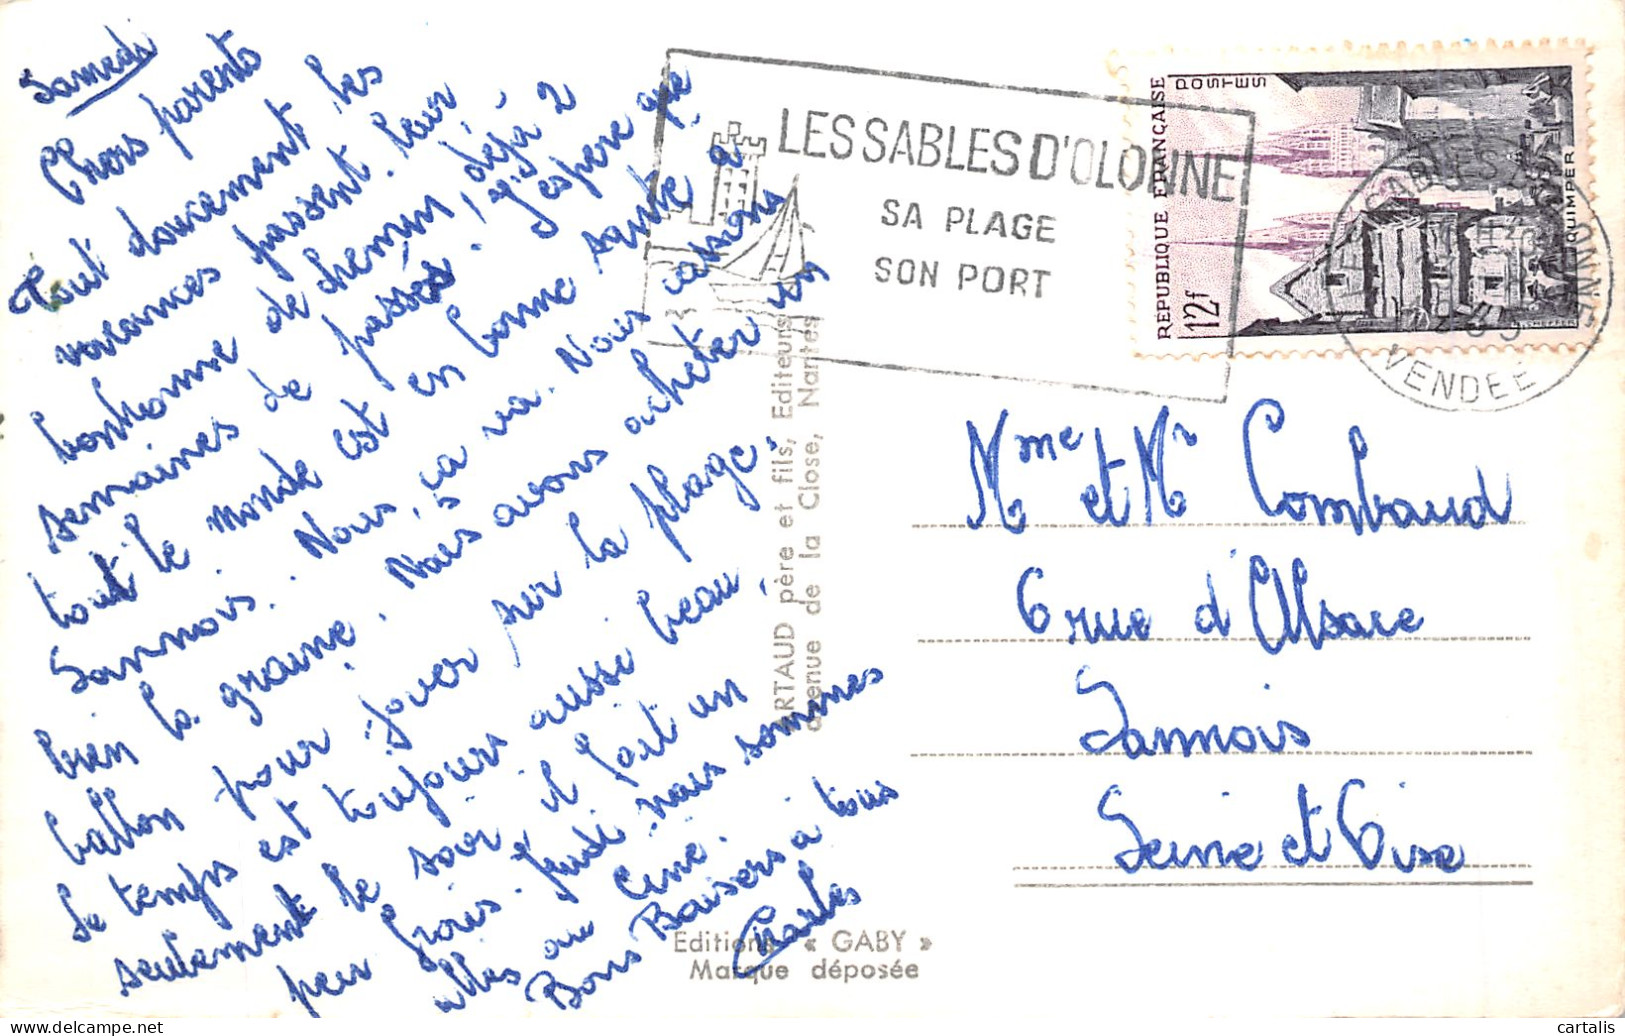 Samedi
Chers parents
Tout doucement les
vacances passent leur
bonhomme de chemin, déjà 2
semaines de passées ! J'espère que
tout le monde est en bonne santé à
Sannois. Nous, ça va. Nous cassons
bien la graine. Nous avons acheter un
ballon pour jouer sur la plage.
Le temps est toujours aussi beau,
seulement le soir il fait un
peu frais. Jeudi nous sommes
allés au Ciné.
Bons Baisers à tous
Charles
LES SABLES D'OLONNE
SA PLAGE
SON PORT
RÉPUBLIQUE FRANÇAISE
POSTES
12f
QUIMPER
CHEFFER
SABLES D'OLONNE
VENDÉE
ARTAUD père et fils, Editeurs
avenue de la Close, Nantes
Mme et Mr Combaud
6 rue d'Alsace
Sannois
Seine et Oise
Editions « GABY »
Marque déposée
cartalis
www.delcampe.net